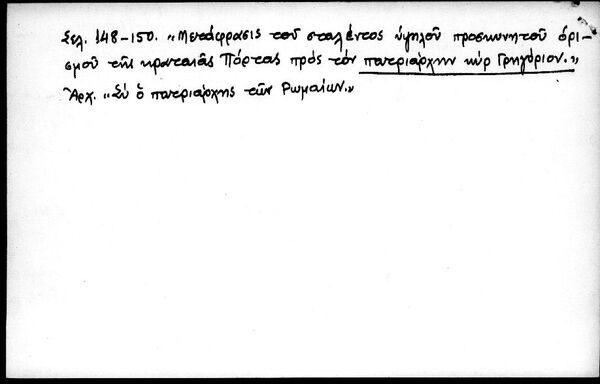 Σελ. 148-150. "Μετάφρασις τοῦ σταλέντος ὑψηλοῦ προσκυνητοῦ ὁρι-
σμοῦ τῆς κραταιᾶς Πόρτας πρός τόν πατριάρχην κύρ Γρηγόριον."
Ἀρχ. "Σύ ὁ πατριάρχης τῶν Ρωμαίων."